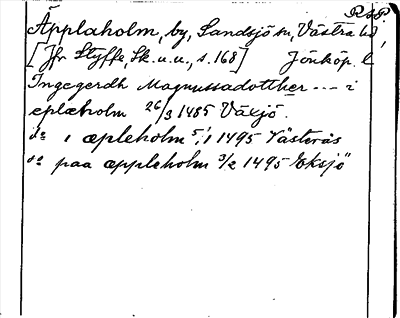 Äpplaholm, by, Sandsjö sn, Västra hd,
[Jfr Styffe, Sk. u. u., s. 168] Jönköp. l.
Ingegerdh Magnussadotther --- i
eplæholm 26/3 1485 Växjö.
do i æpleholm 5/1 1495 Västerås
do paa æppleholm 3/2 1495 Eksjö